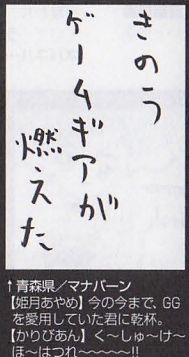 きのう
ゲームギアが
燃えた
↑青森県／マナバーン
【姫月あやめ】今の今まで、GG
を愛用していた君に乾杯。
【かりぴあん】く〜しゅ〜け〜
ほ〜はつれ〜〜〜〜〜!!